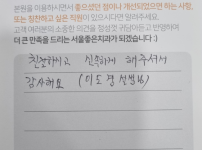 본원을 이용하시면서 좋으셨던 점이나 개선되었으면 하는 사항,
또는 칭찬하고 싶은 직원이 있으시다면 알려주세요.
고객 여러분의 소중한 의견을 겸허히 귀담아듣고 반영하여
더 큰 만족을 드리는 서울좋은치과가 되겠습니다 :)
친절하고 신속하게 해주셔서
감사해요 (이도경 선생님)